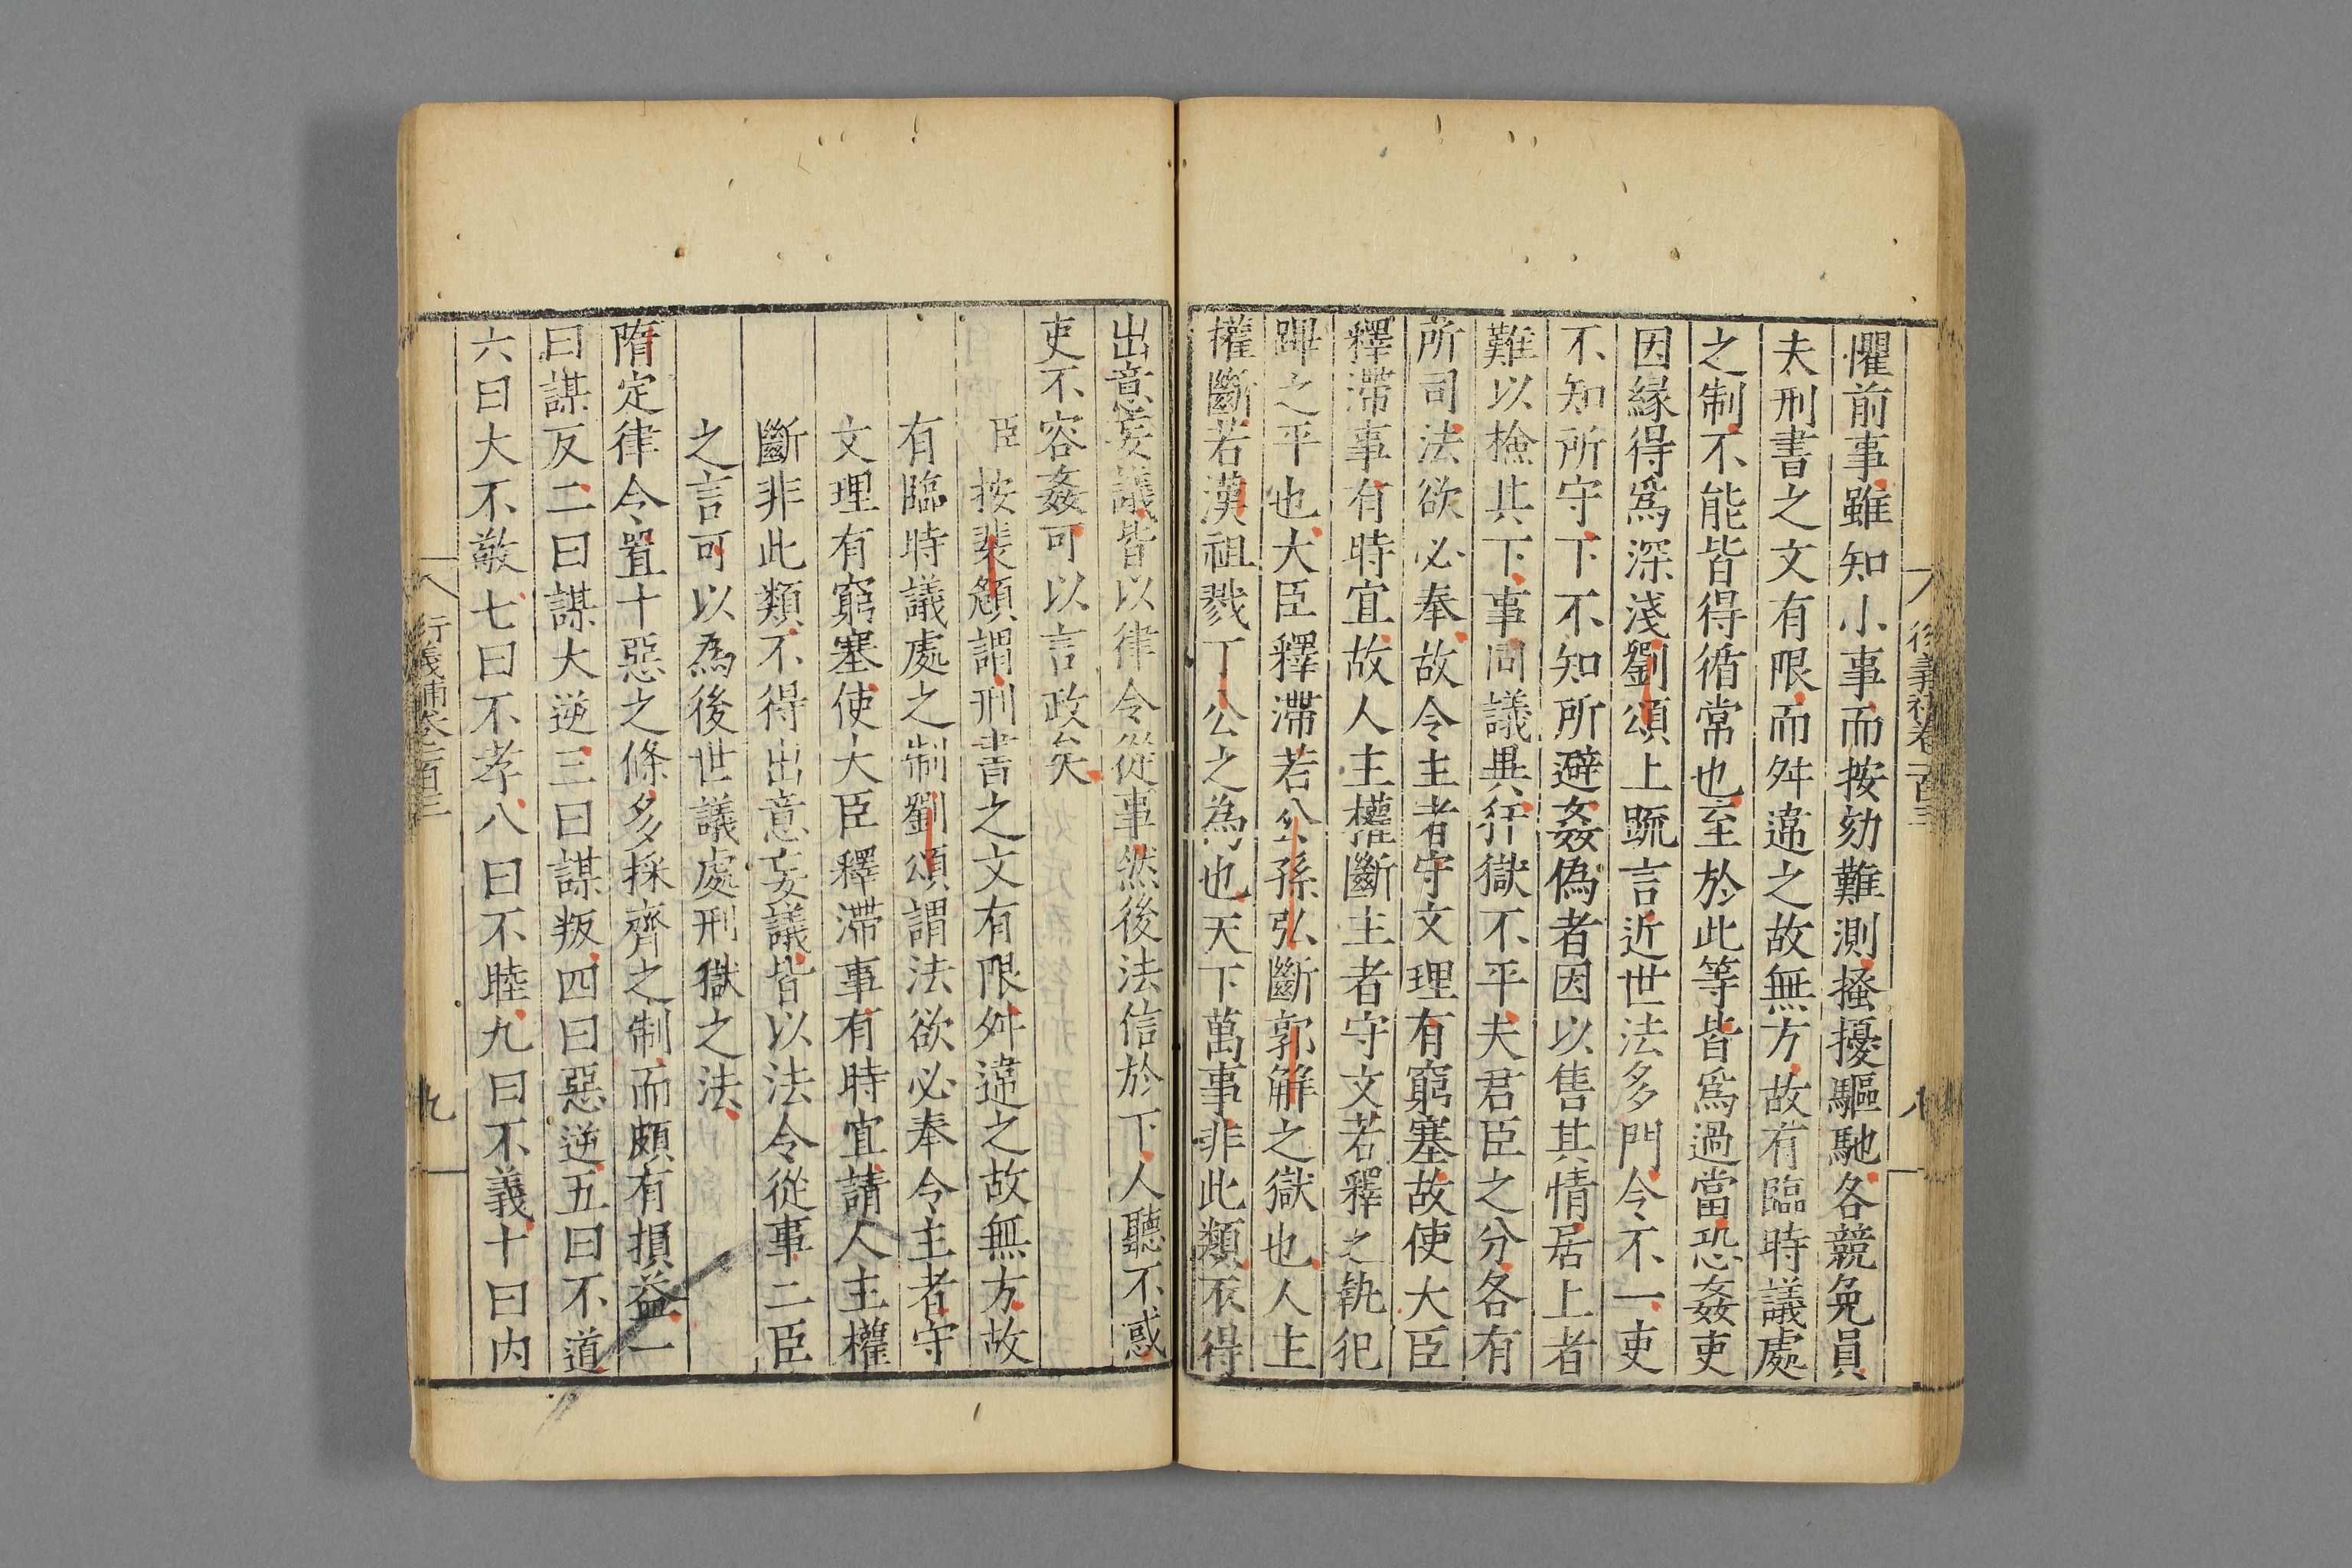 懼前事雖知小事而按劾難測搔擾驅馳各競免員
夫刑書之文有限而舛違之故無方故有臨時議處
之制不能皆得循常也至於此等皆爲過當恐姦吏
因緣得爲深淺劉頌上䟽言近世法多門令不一吏
不知所守下不知所避姦偽者因以售其情居上者
難以檢其下事同議異犴獄不平夫君臣之分各有
所司法欲必奉故令主者守文理有窮塞故使大臣
釋滯事有時宜故人主權斷主者守文若釋之執犯
蹕之平也大臣釋滯若公孫弘斷郭解之獄也人主
權斷若漢祖戮丁公之為也天下萬事非此類不得
出意妄議皆以律令從事然後法信於下人聽不惑
吏不容姦可以言政矣
臣按裴頠謂刑書之文有限舛違之故無方故
有臨時議處之制劉頌謂法欲必奉令主者守
文理有窮塞使大臣釋滯事有時宜請人主權
斷非此類不得出意妄議皆以法令從事二臣
之言可以為後世議處刑獄之法
隋定律令置十惡之條多採齊之制而頗有損益一
曰謀反二曰謀大逆三曰謀叛四曰惡逆五曰不道
六曰大不敬七曰不孝八曰不睦九曰不義十曰内
衍義補卷一百三
八
衍義補卷一百三
九